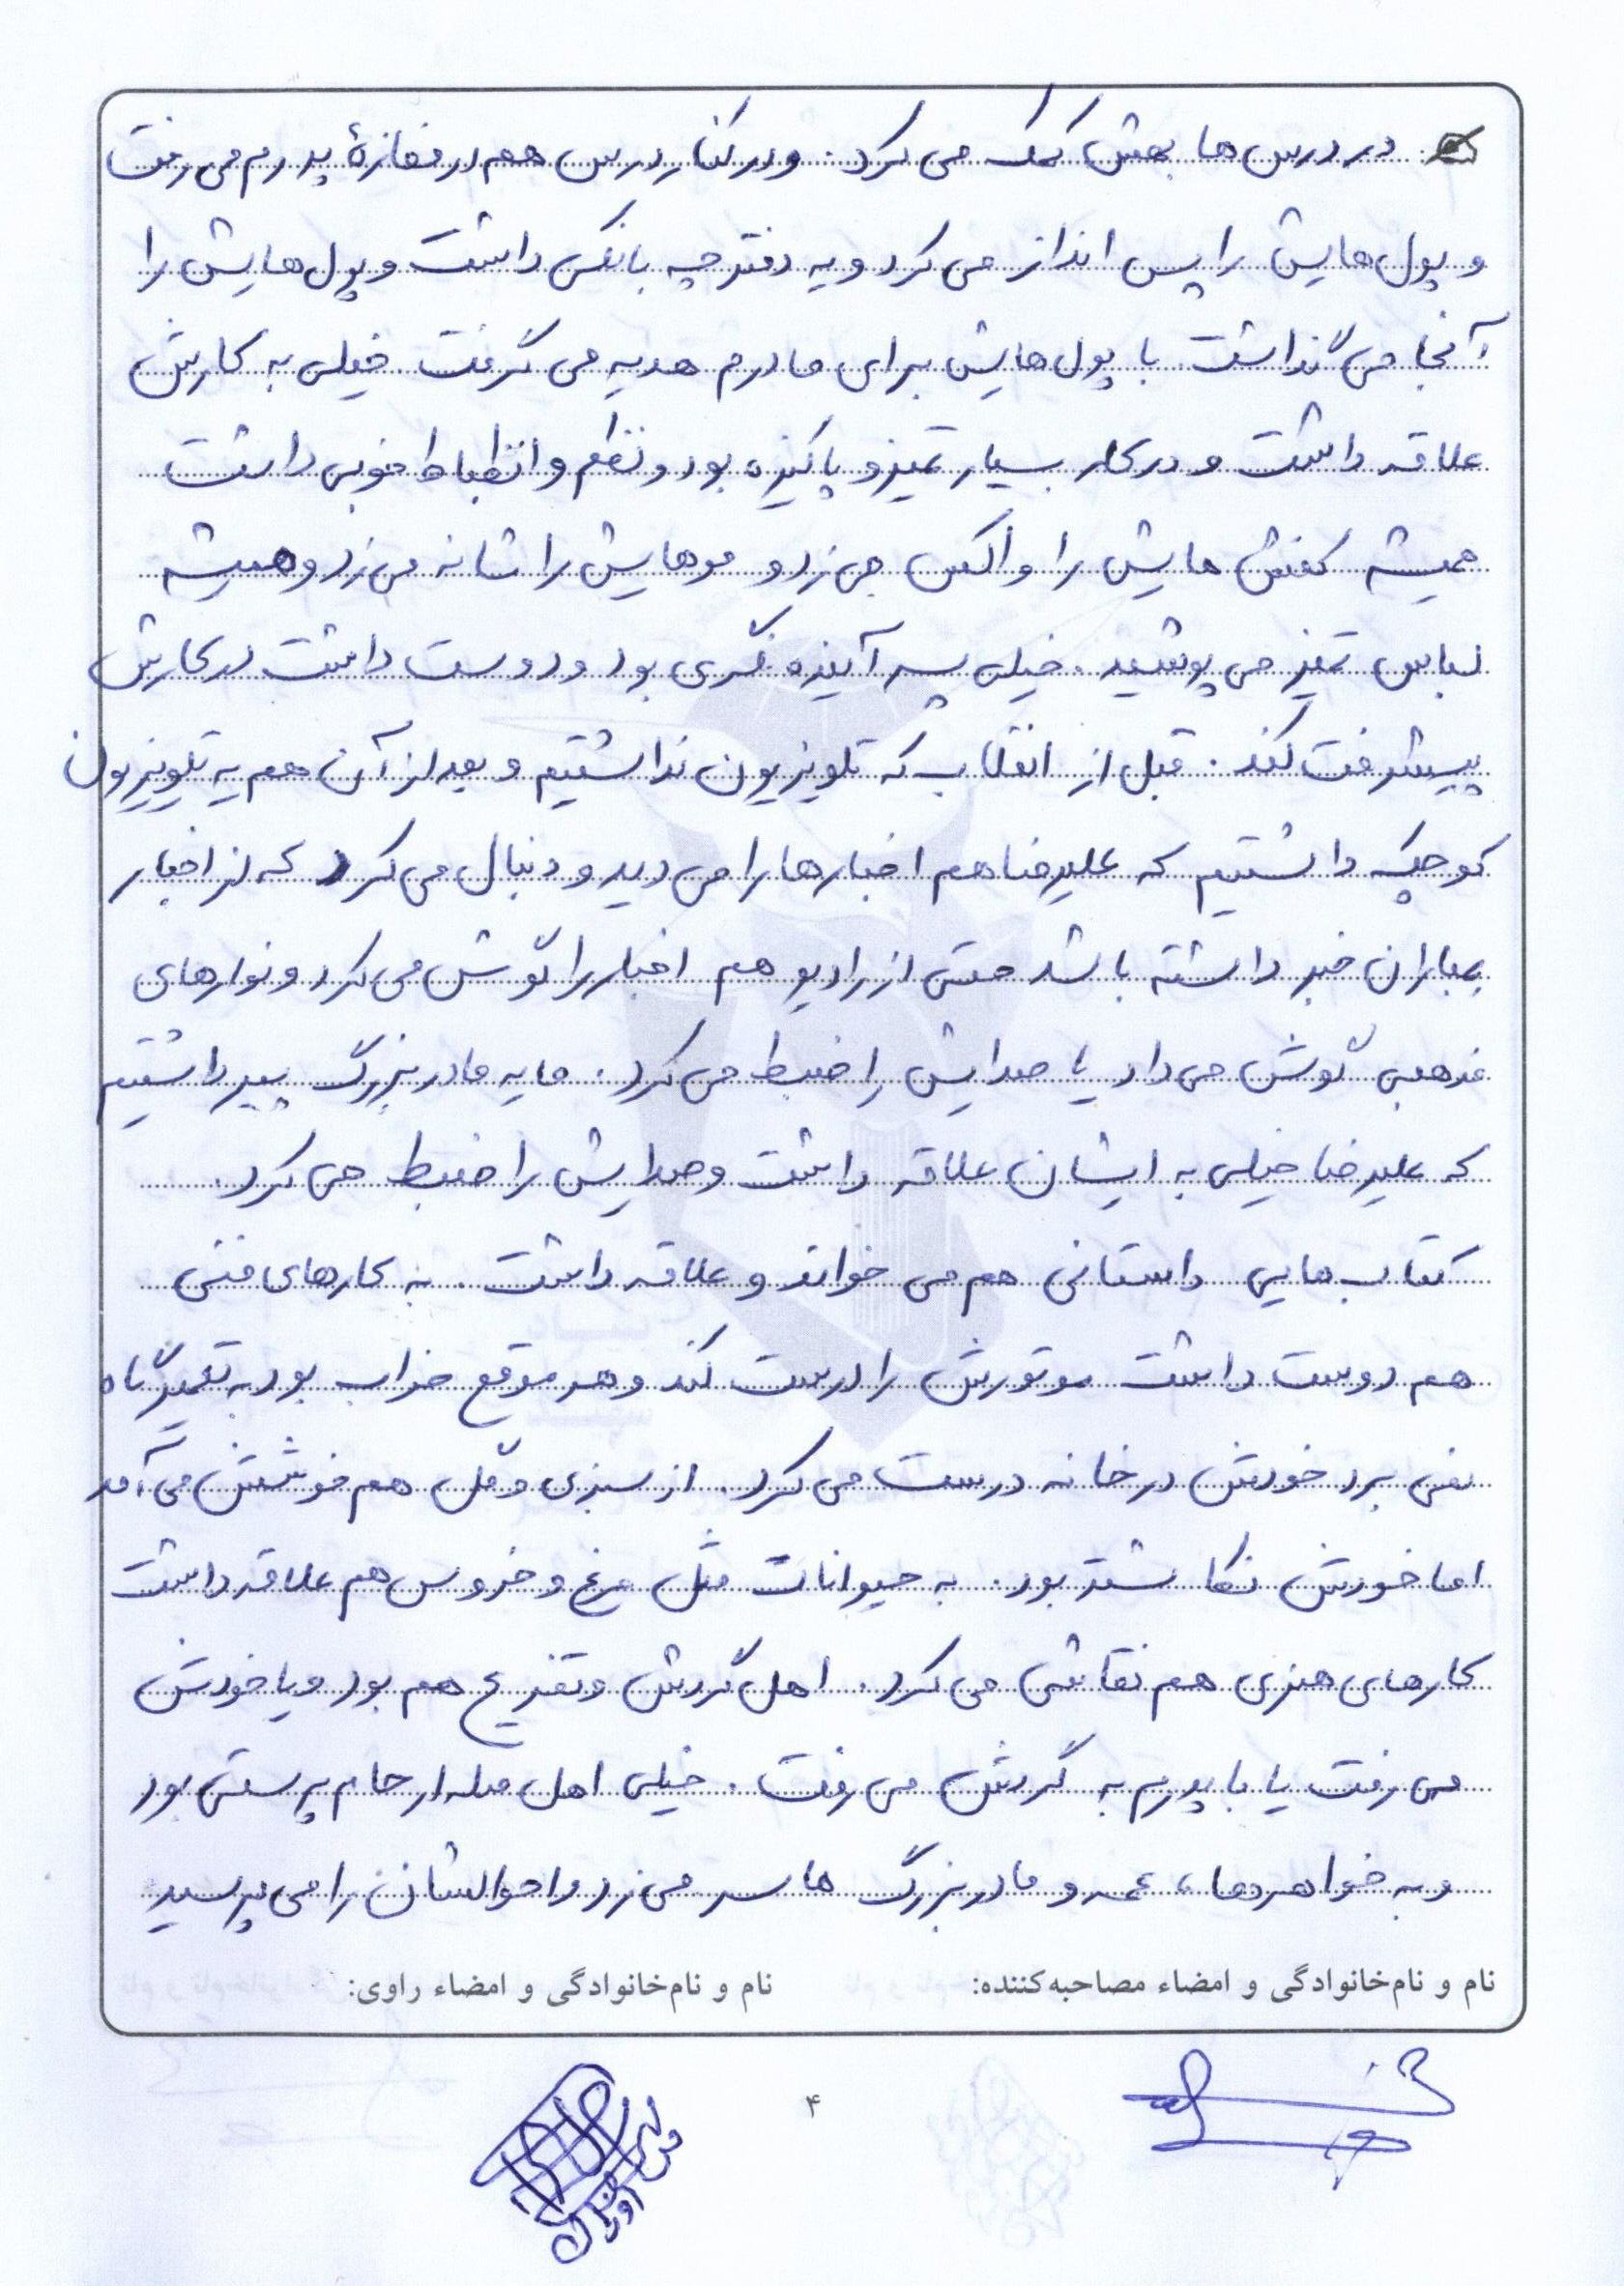 در درس‌ها بهش کمک می‌کرد. و در کنار درس هم در مغازهٔ پدرم می‌رفت
و پول‌هایش را پس انداز می‌کرد و یه دفترچه بانکی داشت و پول‌هایش را
آنجا می‌گذاشت با پول‌هایش برای مادرم هدیه می‌گرفت. خیلی به کارش
علاقه داشت و در کار بسیار تمیز و پاکیزه بود و نظم و انظباط خوبی داشت
همیشه کفش هایش را واکس می‌زد و موهایش را شانه می‌زد و همیشه
لباس تمیز می پوشید. خیلی پسر آینده نگری بود و دوست داشت در کارش
پیشرفت کند. قبل از انقلاب که تلویزیون نداشتیم و بعد از آن هم یه تلویزیون
کوچک داشتیم که علیرضا هم اخبارها را می دید و دنبال می‌کرد که از اخبار
بمباران خبر داشته باشد حتی از رادیو هم اخبار را گوش می‌کرد و نوارهای
مذهبی گوش می‌داد یا صدایش را ضبط می‌کرد. ما یه مادربزرگ پیر داشتیم
که علیرضا خیلی به ایشان علاقه داشت و صدایش را ضبط می‌کرد.
کتاب‌هایی داستانی هم می خواند و علاقه داشت. به کارهای فنی
هم دوست داشت موتورش را درست کند و هر موقع خراب بود به تعمیرگاه
نمی برد خودش در خانه درست می‌کرد. از سبزی و گل هم خوشش می‌آمد
اما خودش نکاشته بود. به حیوانات مثل مرغ و خروس هم علاقه داشت
کارهای هنری هم نقاشی می‌کرد. اهل گردش و تفریح هم بود و یا خودش
می‌رفت یا با پدرم به گردش می‌رفت. خیلی اهل صله ارحام پرستی بود
و به خواهرها، عمه و مادربزرگ ها سر می‌زد و احوالشان را می‌پرسید
نام و نام‌خانوادگی و امضاء مصاحبه‌کننده:
نام و نام‌خانوادگی و امضاء راوی:
۴